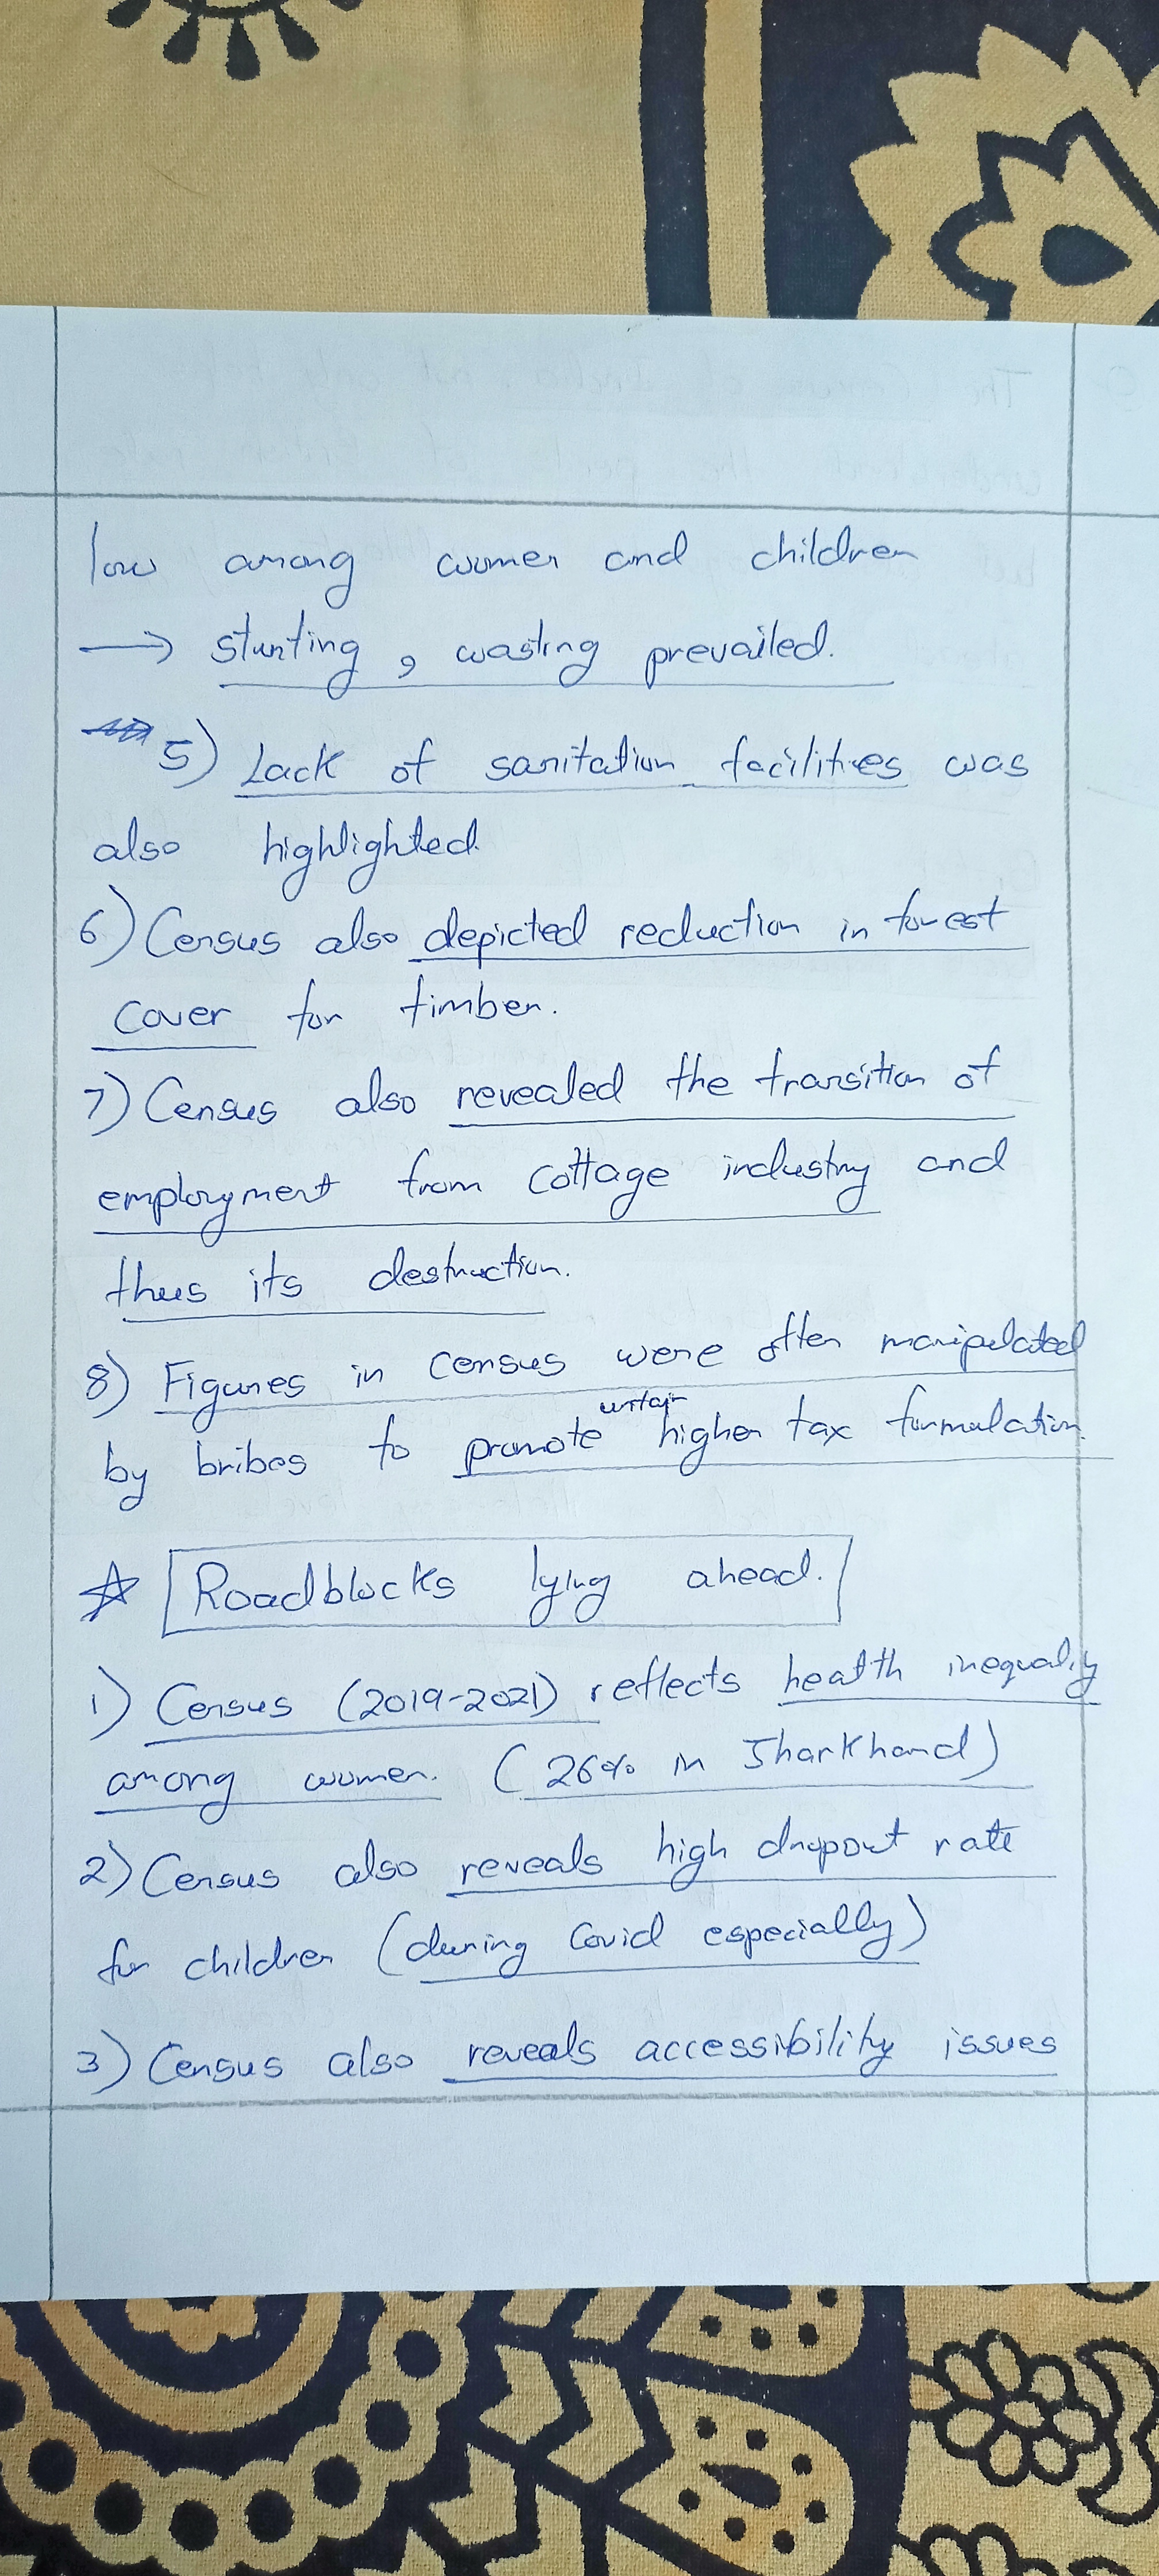 low among women and children
→ stunting, wasting prevailed.
5) Lack of sanitation facilities was
also highlighted
6) Census also depicted reduction in forest
cover for timber.
7) Census also revealed the transition of
employment from cottage industry and
thus its destruction.
8) Figures in census were often manipulated
by bribes to promote unfair higher tax formulation.
☆ Roadblocks lying ahead.
1) Census (2019-2021) reflects health inequality
among women. (26% in Jharkhand)
2) Census also reveals high dropout rate
for children (during Covid especially)
3) Census also reveals accessibility issues